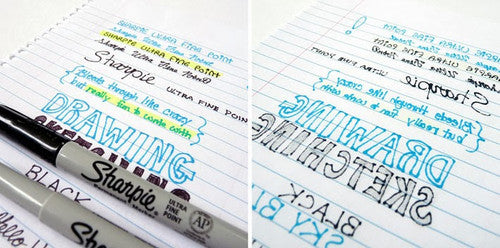 SHARPIE ULTRA FINE POINT
SHARPIE ULTRA FINE POINT
Sharpie Ultra Fine Point
Sharpie
ULTRA FINE POINT
{ Bleeds through like crazy }
{ but really fun to write with }
DRAWING
SKETCHING
Sharpie
ULTRA
FINE
POINT
AP
BLACK
Sharpie
Hello
!
SHARPIE ULTRA FINE POINT
SHARPIE ULTRA FINE POINT
Sharpie Ultra Fine Point
Sharpie
ULTRA FINE POINT
{ Bleeds through like crazy }
{ but really fun to
DRAWING
SKETCHING
BLACK
SKY BLUE